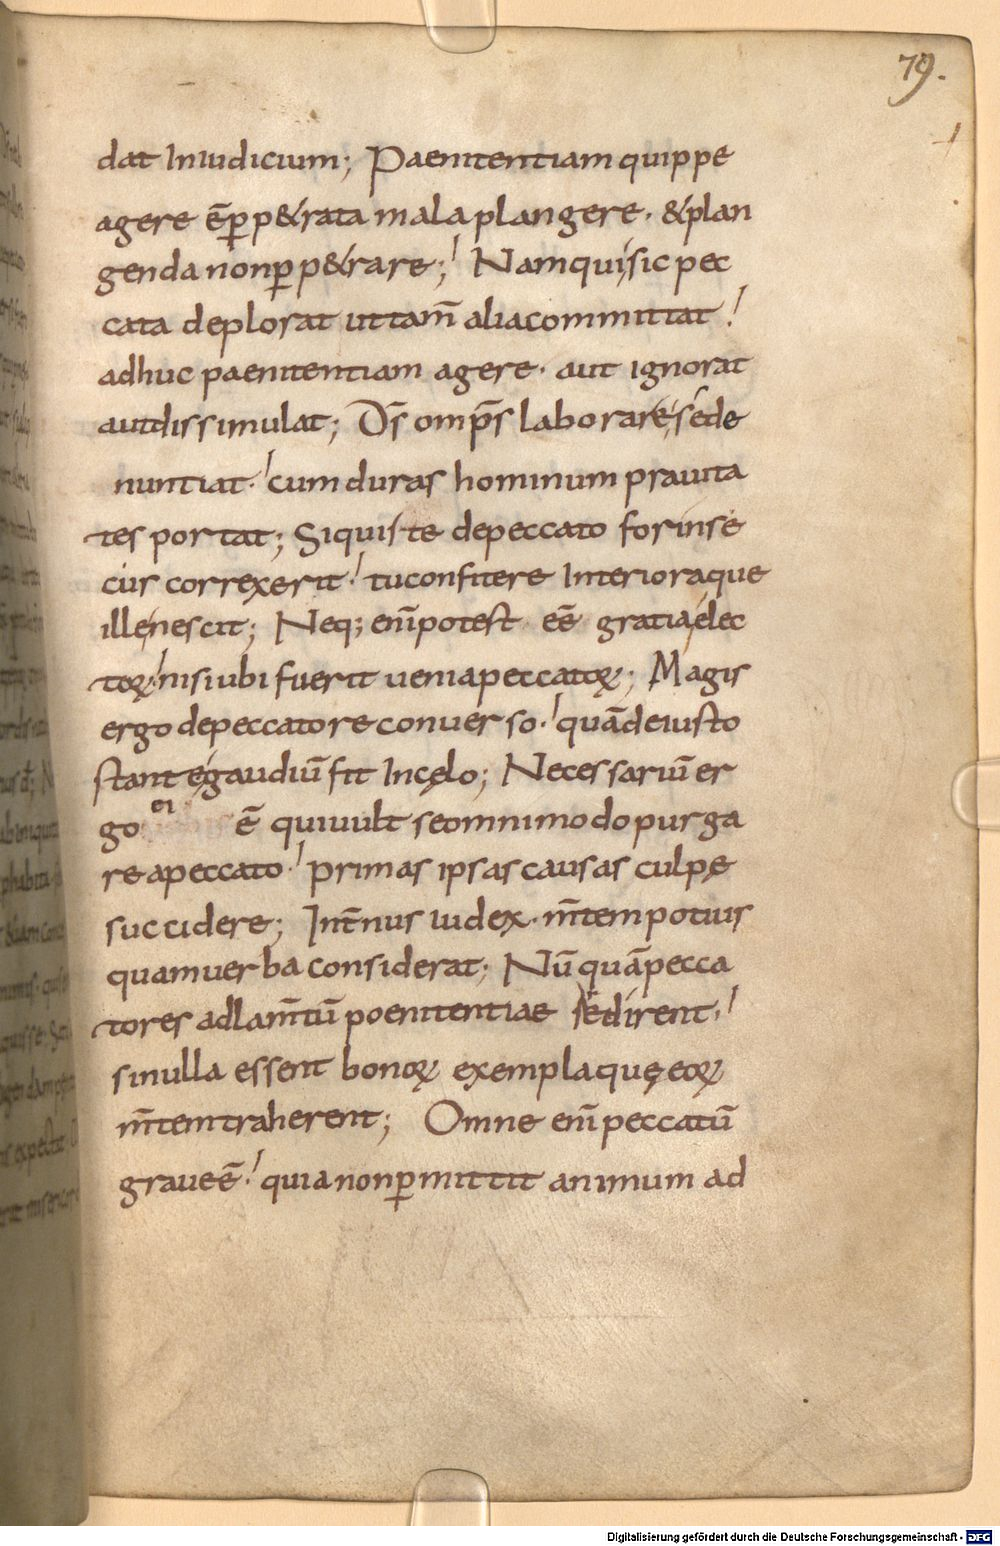 79.
dat Iniudicium; Paenitentiam quippe
agere ē p̱p&rata mala plangere · &plan
genda non p̱p&rare; Nam qui sic pec
cata deplorat ut tam̄ alia committat
adhuc paenitentiam agere · aut ignorat
aut dissimulat; Ds̄ omp̄s laborare sede
nuntiat · cum duras hominum prauita
tes portat; Si quis te de peccato forinse
cus correxerit · tu confitere Interiora que
ille nescit; Neq; eni̅ potest eē gratia elec
toꝝ nisi ubi fuerit uenia peccatoꝝ; Magis
ergo de peccatore conuerso · quā de iusto
stante gaudiū fit In cęlo; Necessariū er
go ei ē qui uult se omnimodo purga
re a peccato · primas ipsas causas culpę
succidere; Int̄nus iudex · m̄tem potius
quam uerba considerat; Nū quā pecca
tores ad lam̄tū poenitentiae redirent ·
si nulla essent bonoꝝ exempla quę eoꝝ
m̄tem traherent; Omne eni̅ peccatū
graue ē · quia non p̱mittit animum ad
Digitalisierung gefördert durch die Deutsche Forschungsgemeinschaft - DFG